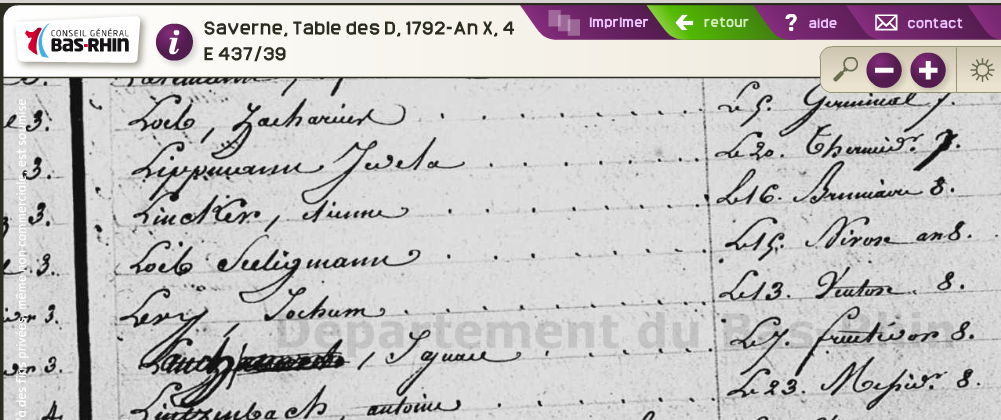 CONSEIL GÉNÉRAL
BAS-RHIN
Saverne, Table des D, 1792-An X, 4
E 437/39
imprimer
retour
? aide
contact
Loib, Zacharias . . . . . . . Le 5. Germinal 7.
3.
Lippmann Judela . . . . . . . Le 20. Thermidr. 7.
3.
Lincker, étienne . . . . . . . Le 16. Brumaire 8.
3.
Loib Seeligmann . . . . . . . Le 15. Nivose an 8.
3.
Levy, Jochum . . . . . . . Le 13. Ventose 8.
3.
, Ignace . . . . . . . Le 7. fructidor 8.
3.
Lintzenbach, antoine Le 23. Messidr. 8.
4
Département du Bas-Rhin
des fins privées, même non commerciales est soumise